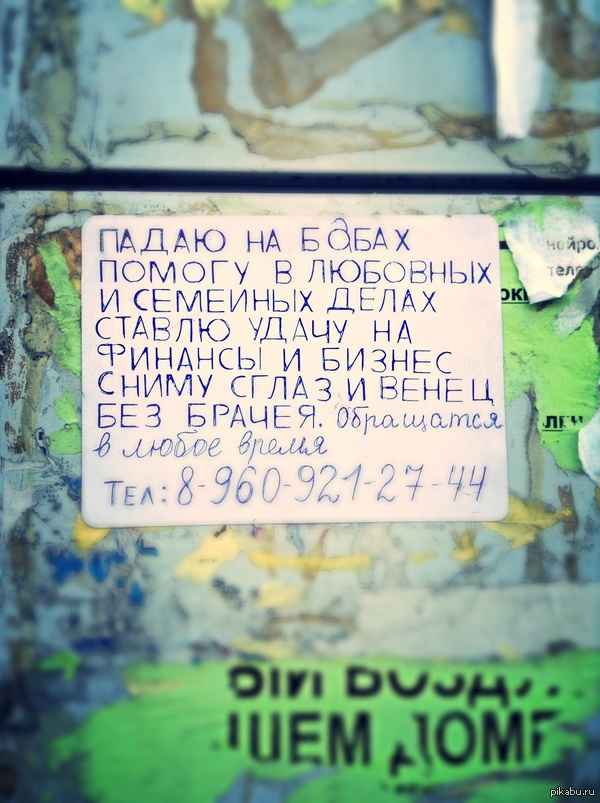 ПАДАЮ НА БОБАХ
ПОМОГУ В ЛЮБОВНЫХ
И СЕМЕЙНЫХ ДЕЛАХ
СТАВЛЮ УДАЧУ НА
ФИНАНСЫ И БИЗНЕС
СНИМУ СГЛАЗ И ВЕНЕЦ
БЕЗ БРАЧЕЯ. Обращатся
в любое время
Тел: 8-960-921-27-44
pikabu.ru